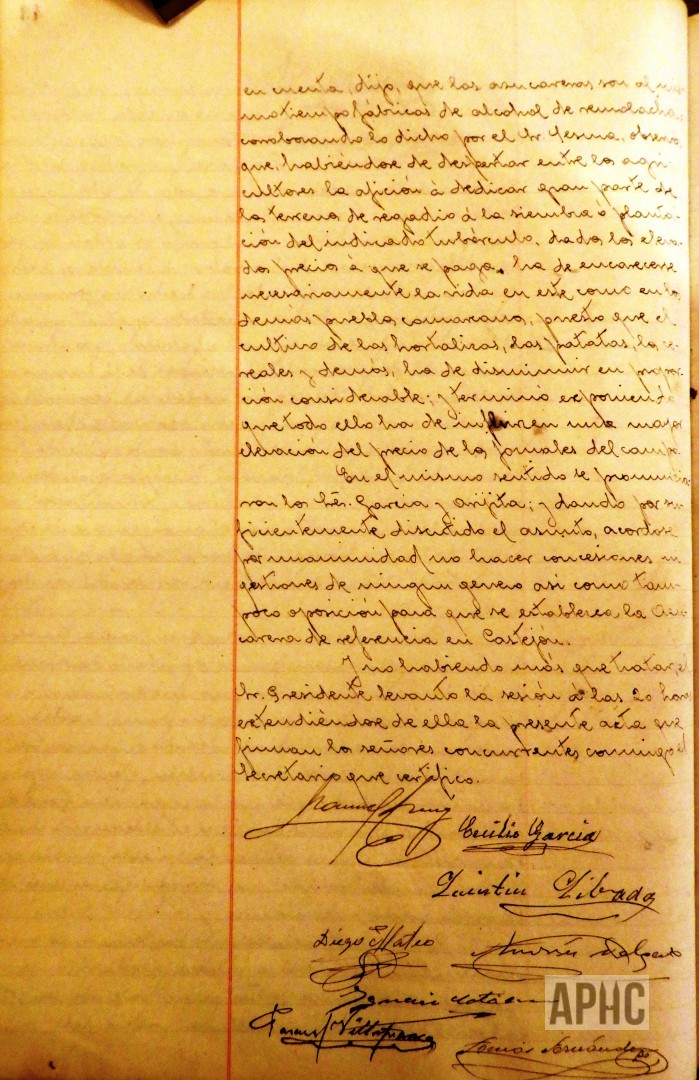 en cuenta, dijo, que las azucareras son al mis-
mo tiempo fábricas de alcohol de remolacha,
corroborando lo dicho por el Sr. Lesma, observó
que, habiéndose de despertar entre los agri-
cultores la afición á dedicar gran parte de
los terrenos de regadío á la siembra ó planta-
ción del indicado tubérculo, dados los eleva-
dos precios á que se paga, ha de encarecerse
necesariamente la vida en este como en los
demás pueblos comarcanos, puesto que el
cultivo de las hortalizas, las patatas, los ce-
reales y demás, ha de disminuir en propor-
ción considerable; y terminó exponiendo
que todo ello ha de influir en una mayor
elevación del precio de los jornales del campo.
En el mismo sentido se pronuncia-
ron los Sres. Garcia y Arijita; y dando por su-
ficientemente discutido el asunto, acordose
por unanimidad no hacer concesiones ni
gestiones de ningun genero asi como tam-
poco oposición para que se establezca la Azu-
carera de referencia en Castejón.
Y no habiendo más que tratar, el
Sr. Presidente levanto la sesión á las 20 horas
extendiéndose de ella la presente acta que
firman los señores concurrentes conmigo el
Secretario que certifico.
Cecilio Garcia
Quintin Libada
Diego Mateo
Andrés Delgado
Ignacio
Villafranca
Tomás Arnández
APHC